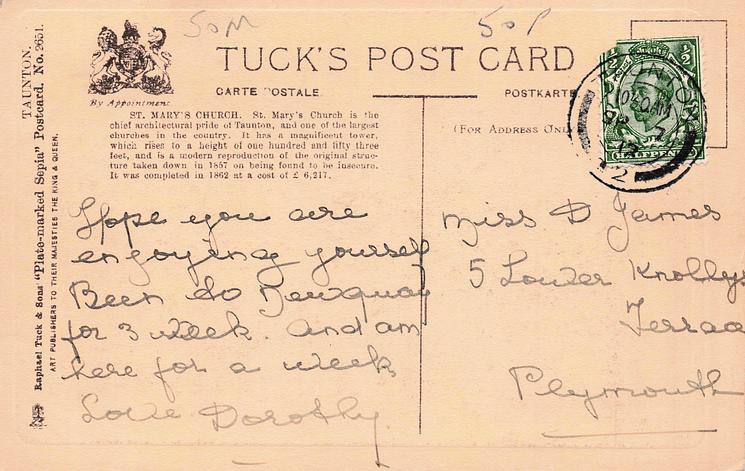 50M
50P
TUCK'S POST CARD
CARTE POSTALE.
POSTKARTE
By Appointment.
(For Address Only
ST. MARY'S CHURCH. St. Mary's Church is the
chief architectural pride of Taunton, and one of the largest
churches in the country. It has a magnificent tower,
which rises to a height of one hundred and fifty three
feet, and is a modern reproduction of the original struc-
ture taken down in 1857 on being found to be insecure.
It was completed in 1862 at a cost of £ 6,217.
TAUNTON.
Raphael Tuck & Sons' "Plate-marked Sepia" Postcard. No. 2651.
ART PUBLISHERS TO THEIR MAJESTIES THE KING & QUEEN.
Hope you are
enjoying yourself
Been to Newquay
for 3 week. and am
here for a week
Love Dorothy.
Miss D James
5 Lower Knollys
Terrace
Plymouth
HALFPENNY
12